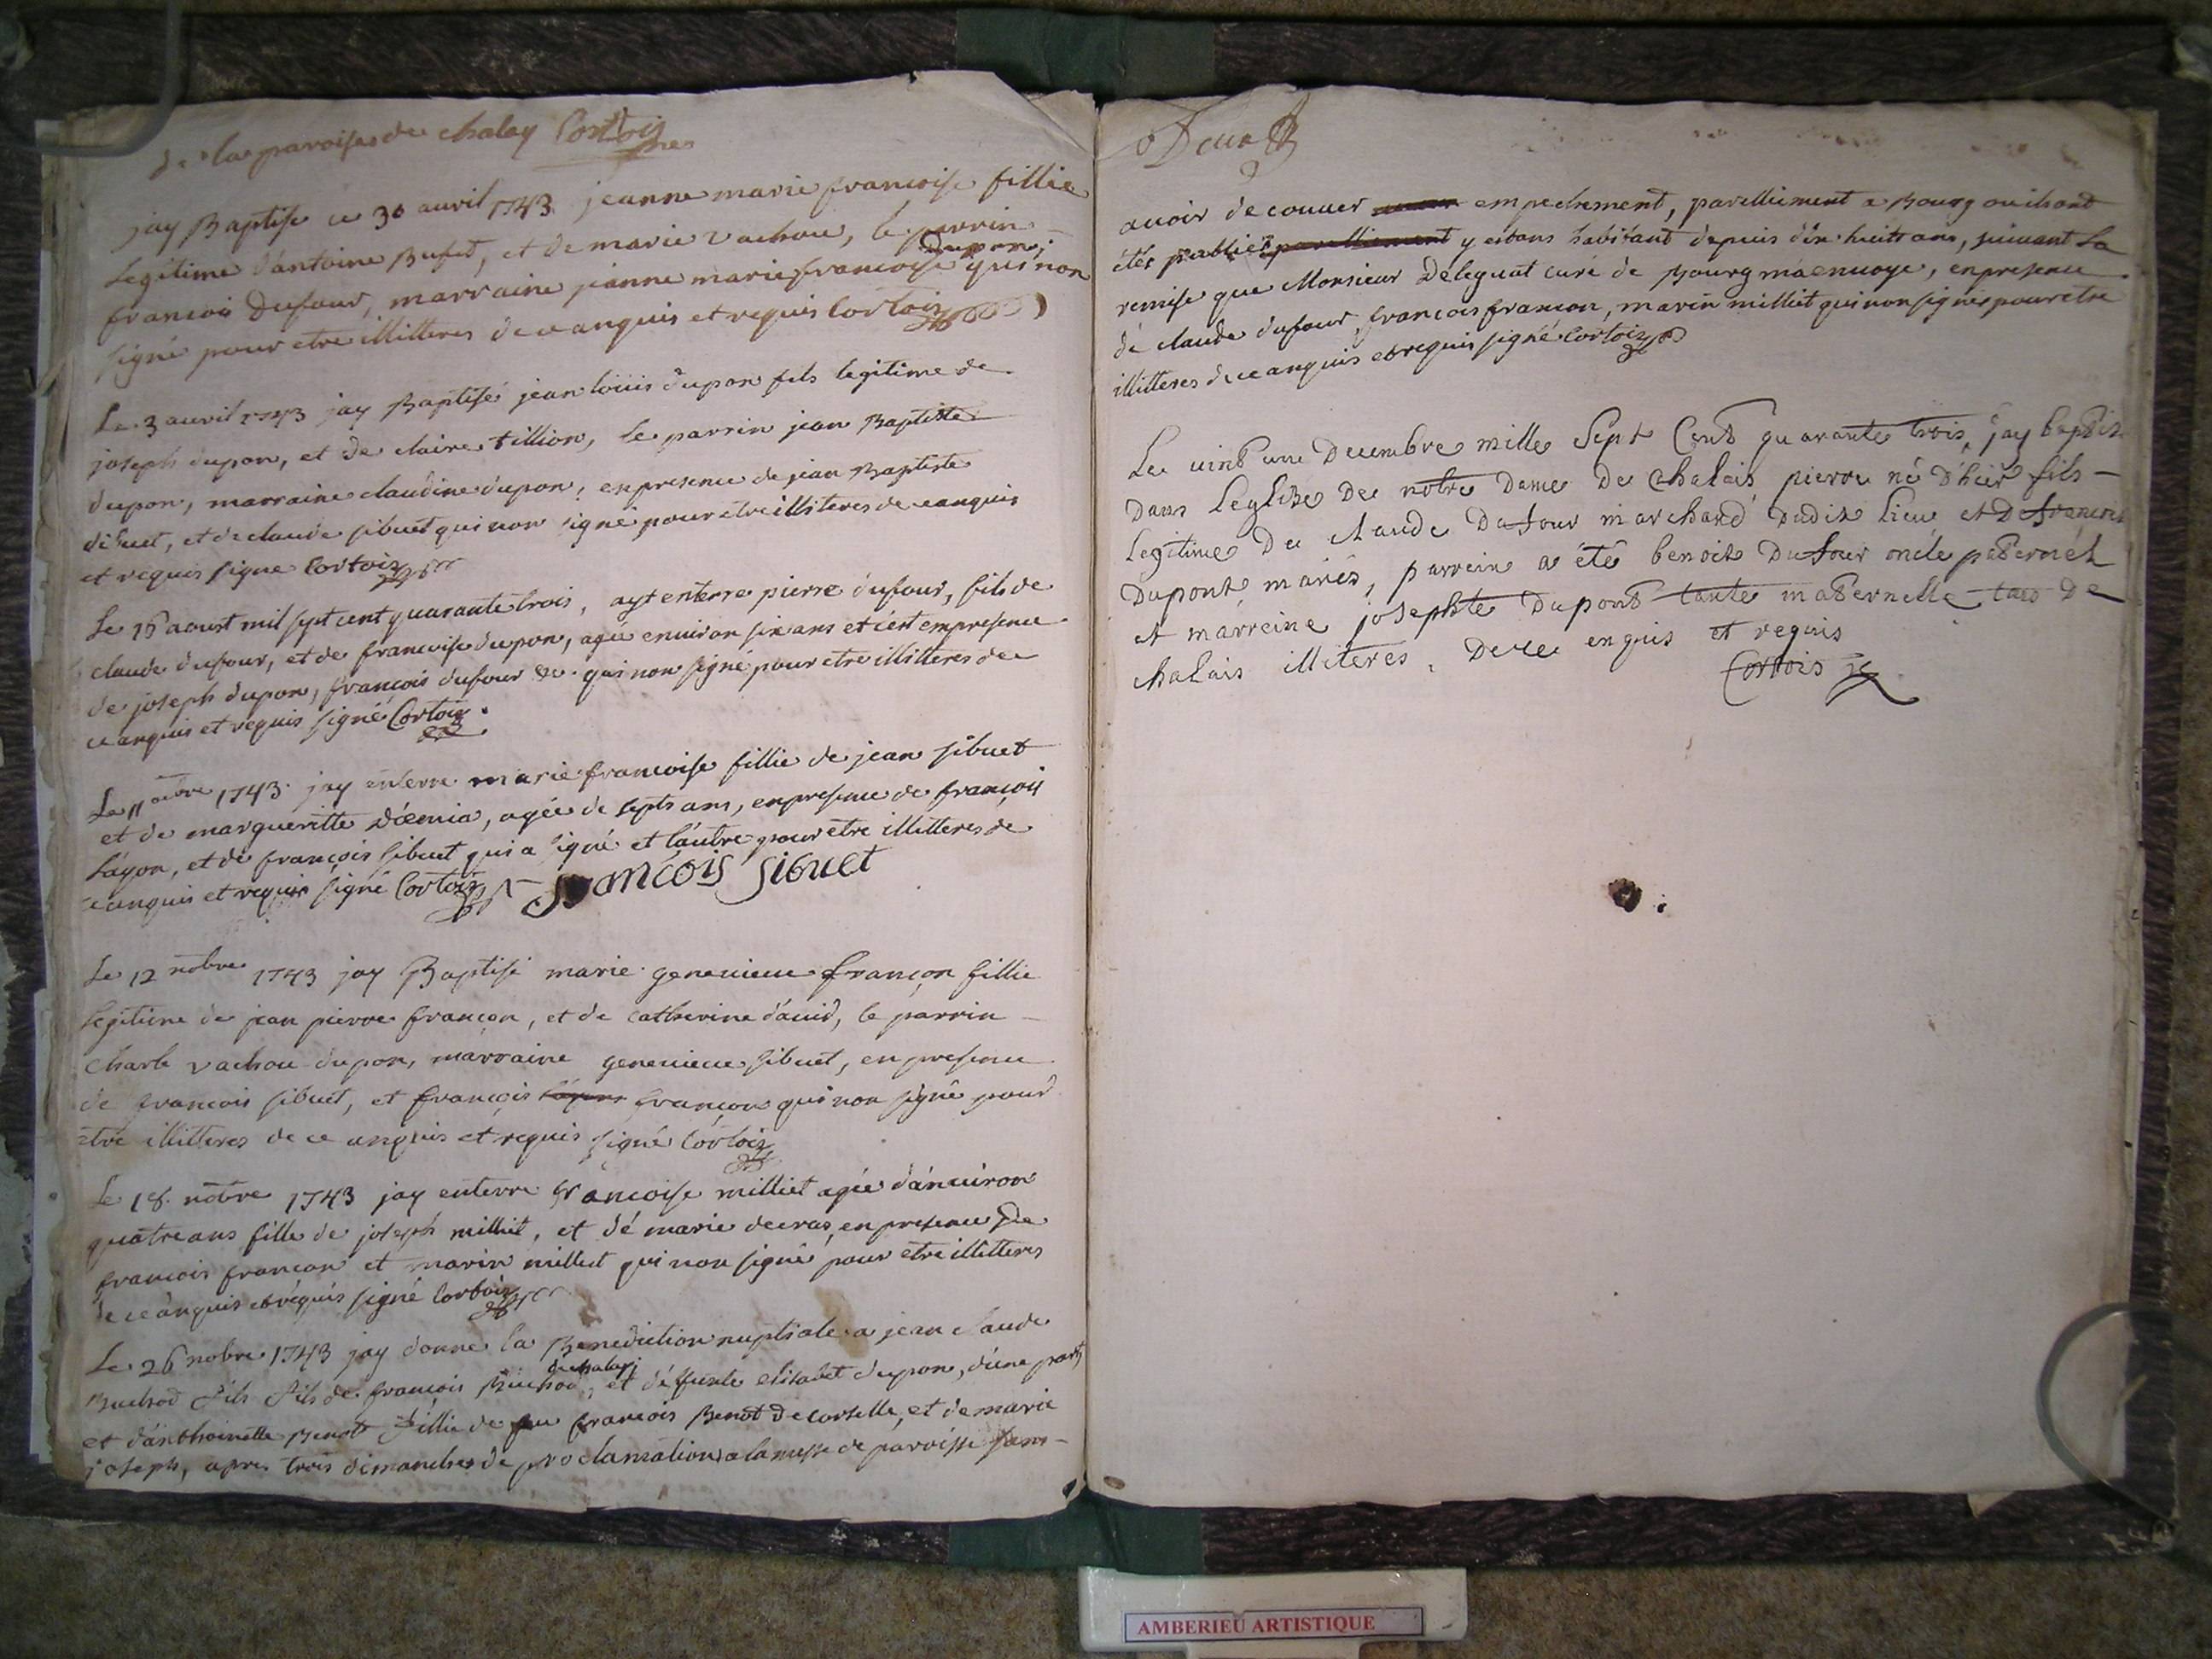 de la paroisse de chaley Cortois
jay Baptise ce 30 auvril 1743 jeanne marie francoise fillie
legitime d'antoine Bufet, et de marie vachou, le parrin
dupon;
francois Dufour, marraine jeanne marie francoise qui non
signé pour etre illitteres de ce anquis et requis Cortois
Le 3 auvril 1743 jay Baptisé jean loüis dupon fils legitime de
joseph dupon, et de claire tillion, le parrin jean Baptiste
dupon, marraine claudine dupon, en presence de jean Baptiste
sibuet, et de claude sibuet qui non signé pour etre illiteres de ce anquis
et requis signe Cortois
Le 16 aoust mil sept cent quarante trois, ayt enterre pierre dufour, fils de
claude dufour, et de francoise dupon, agée enuiron six ans et c'est en presence
de joseph dupon, françois dufour &c. qui non signé pour etre illitteres de
ce anquis et requis signé Cortois.
Le 11 1743 jay enterre marie francoise fillie de jean sibuet
et de margueritte D'aemia, agée de septs ans, en presence de françois
Layon, et de françois sibuet qui a signé et l'autre pour etre illitteres de
ce anquis et requis signé Cortois françois sibuet
Le 12 nobre 1743 jay Baptisé marie genevieue françon fillie
legitime de jean pierre françon, et de catherine d'auid, le parrin
charle vachou dupon, marraine genevieue sibuet, en presence
de francois sibuet, et françois françon qui non signé pour
etre illitteres de ce anquis et requis signé Cortois
Le 18. nobre 1743 jay enterre françoise milliet agée d'anuiron
quatre ans fille de joseph milliet, et dé marie decras, en presence de
francois françon et marin milliet qui non signé pour etre illitteres
de ce anquis et requis signé Cortois
Le 26 nobre 1743 jay donne la Benediction nuptiale a jean claude
de chaley
Buchod fils fils de françois Buchod, et défunte elisabet dupon, d'une part
et d'anthoinette Benot fillie de feu francois Benot de corselle, et de marie
joseph, apres trois dimanches de proclamations a la messe de paroisse sans
Deux
auoir decouuer empechement, parelliement a Bourg ou ils ont
étés publiés parelliement y estans habitant depuis dix huits ans, suiuant la
remise que Monsieur Deleguat curé de Bourg m'a enuoye, en presence
de claude dufour, francois françon, marin milliet qui non signés pour etre
illitteres de ce anquis et requis signé Cortois
Le vint une Decembre mille Sept Cent quarante trois, jay baptizé
Dans leglize De notre Dame De Chalais pierre né D'hier fils
legitime De claude Dufour marchand Dudit lieu et D francoise
Dupont mariés, parrein a été benoit Dufour oncle paternel
et marreine josephte Dupont tante maternelle tous de
chalais illiteres, De ce enquis et requis
Cortois
AMBERIEU ARTISTIQUE